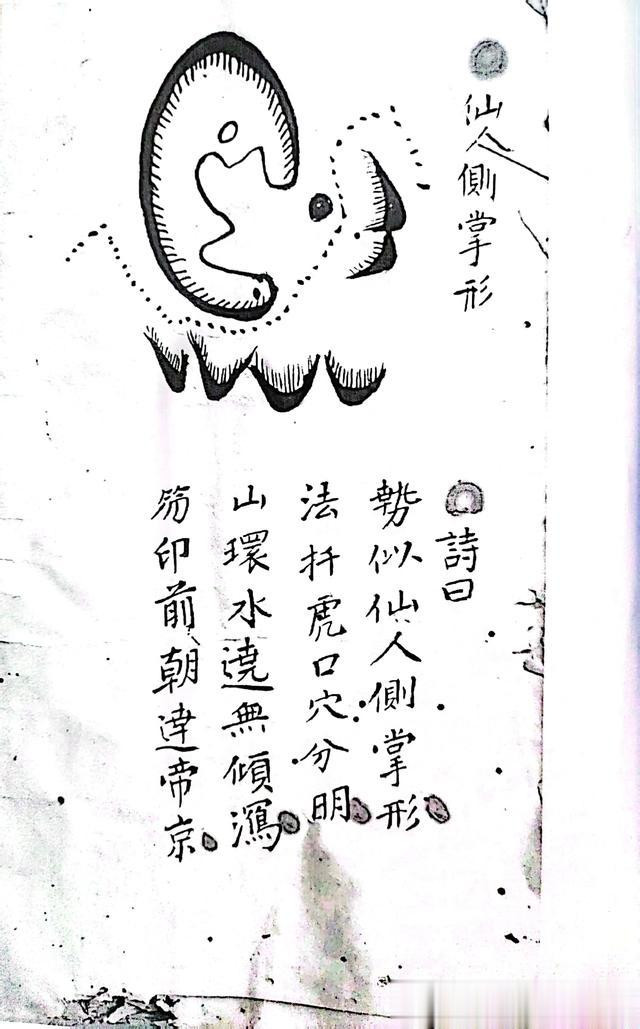 仙人側掌形
詩曰
勢似仙人側掌形
法扦虎口穴分明
山環水遶無傾瀉
笏印前朝達帝京